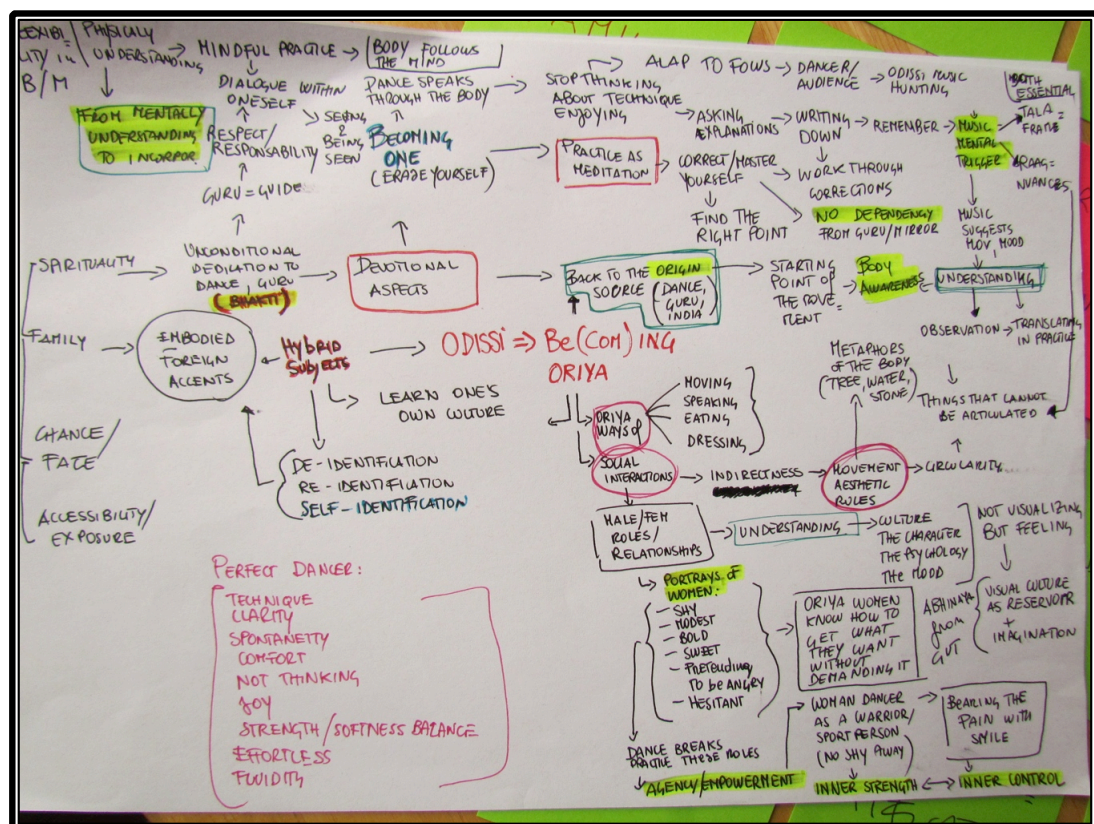 PHYSICALLY
UNDERSTANDING → MINDFUL PRACTICE → BODY FOLLOWS
THE MIND
B/M
FROM MENTALLY
UNDERSTANDING
TO INCORPOR
DIALOGUE WITHIN
ONESELF
DANCE SPEAKS
THROUGH THE BODY
SEEING
&
BEING
SEEN
RESPECT/
RESPONSABILITY
BECOMING
ONE
(ERAZE YOURSELF)
GURU = GUIDE
STOP THINKING
ABOUT TECHNIQUE
ENJOYING
ALAP TO FOWS → DANCER/
AUDIENCE
→ ODISSI MUSIC
HUNTING
BOTH
ESSENTIAL
TALA =
RAAG =
NUANCES
ASKING
EXPLANATIONS
→ WRITING
DOWN
→ REMEMBER →
MUSIC
MENTAL
TRIGGER
PRACTICE AS
MEDITATION
→ CORRECT/MASTER
YOURSELF
→ WORK THROUGH
CORRECTIONS
FIND THE
RIGHT POINT
NO DEPENDENCY
FROM GURU/MIRROR
MUSIC
SUGGESTS
MOV, MOOD
SPIRITUALITY
UNCONDITIONAL
DEDICATION TO
DANCE, GURU
(BHAKTI)
DEVOTIONAL
ASPECTS
BACK TO THE ORIGIN
SOURCE
(DANCE,
GURU,
INDIA)
STARTING
POINT OF
THE MOVE-
MENT
BODY
AWARENESS
UNDERSTANDING
OBSERVATION → TRANSLATING
IN PRACTICE
FAMILY
EMBODIED
FOREIGN
ACCENTS
HYBRID
SUBJECTS
ODISSI ⇒ BE(COM)ING
ORIYA
LEARN ONE'S
OWN CULTURE
METAPHORS
OF THE BODY
(TREE, WATER,
STONE)
THINGS THAT CANNOT
BE ARTICULATED
CHANCE/
FATE
ACCESSIBILITY/
EXPOSURE
DE-IDENTIFICATION
RE-IDENTIFICATION
SELF-IDENTIFICATION
ORIYA
WAYS OF
MOVING
SPEAKING
EATING
DRESSING
SOCIAL
INTERACTIONS
→ INDIRECTNESS
→ MOVEMENT
AESTHETIC
RULES
→ CIRCULARITY
MALE/FEM
ROLES/
RELATIONSHIPS
→ UNDERSTANDING
→ CULTURE
THE CHARACTER
THE PSYCHOLOGY
THE MOOD
NOT VISUALIZING
BUT FEELING
PORTRAYS OF
WOMEN:
- SHY
- MODEST
- BOLD
- SWEET
- PRETENDING
TO BE ANGRY
- HESITANT
ORIYA WOMEN
KNOW HOW TO
GET WHAT
THEY WANT
WITHOUT
DEMANDING IT
ABHINAYA
FROM
GUT
VISUAL CULTURE
AS RESERVOIR
+
IMAGINATION
DANCE BREAKS
PRACTICE THESE ROLES
AGENCY/EMPOWERMENT
WOMAN DANCER
AS A WARRIOR/
SPORT PERSON
(NO SHY AWAY)
BEARING THE
PAIN WITH
SMILE
INNER STRENGTH ↔ INNER CONTROL
PERFECT DANCER:
TECHNIQUE
CLARITY
SPONTANETY
COMFORT
NOT THINKING
JOY
STRENGTH/SOFTNESS BALANCE
EFFORTLESS
FLUIDITY